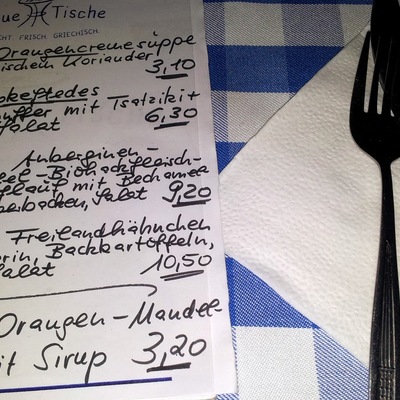 ue Tische
CHT. FRISCH. GRIECHISCH.
Orangencremesuppe
ischem Koriander 3,10
keftedes
puffer, mit Tsatziki +
Salat 6,30
Auberginen-
fel-Biohackfleisch-
flauf mit Bechamel
berbacken, Salat 9,20
Freilandhähnchen
arin, Backkartoffeln,
Salat 10,50
Orangen-Mandel
it Sirup 3,20